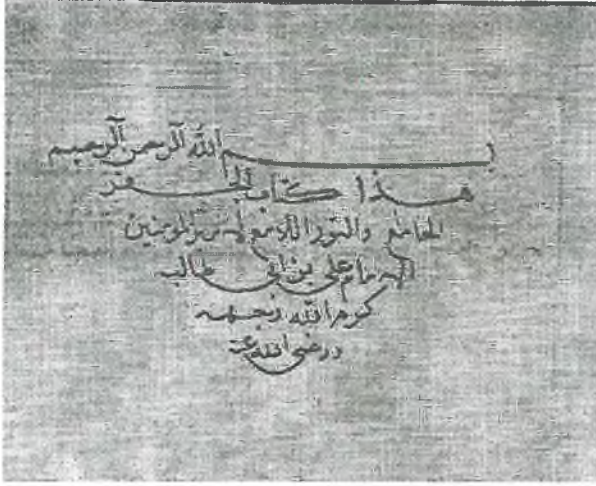 بسم الله الرحمن الرحيم
هذا كتاب الجفر
الجامع والنور اللامع لأمير المؤمنين
الامام علي بن ابي طالب
كرم الله وجهه
ورضي الله عنه